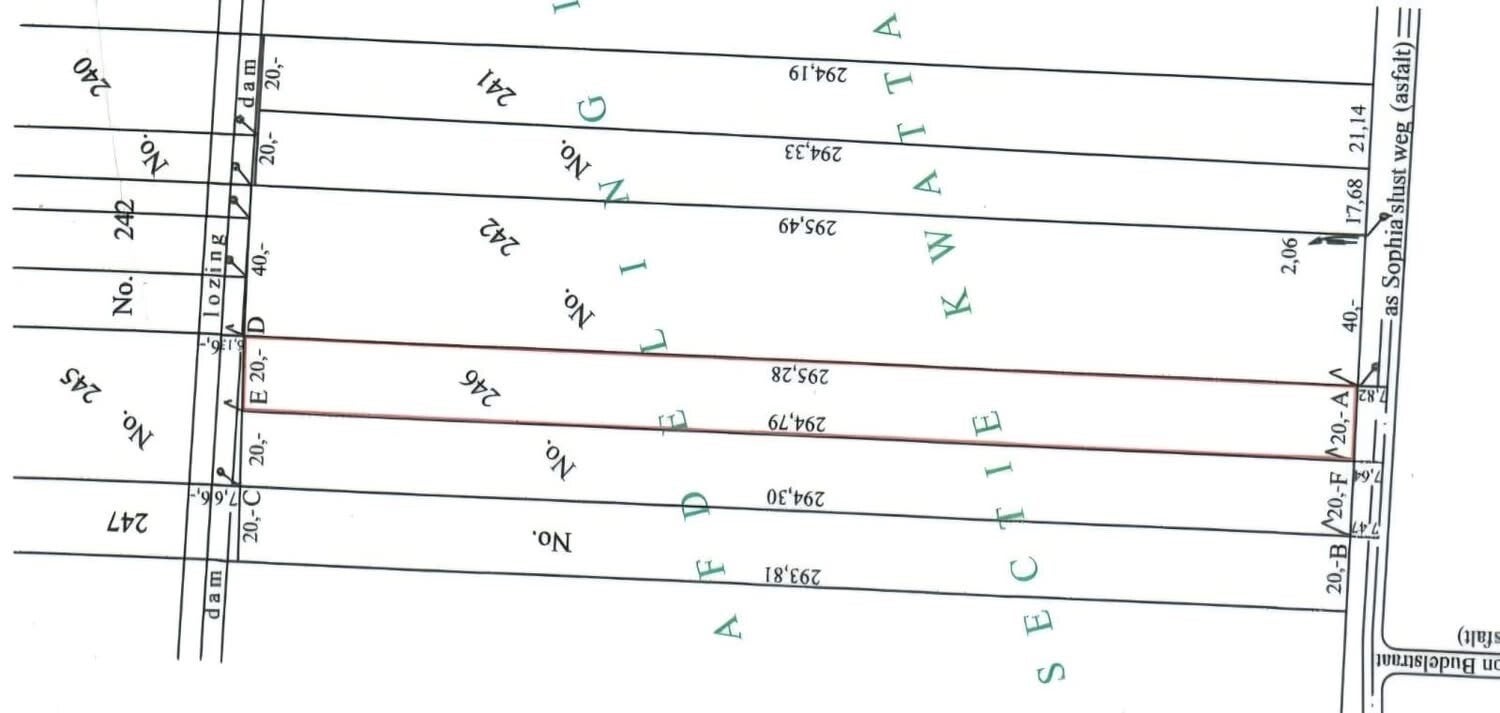 240
No.
242
No.
245
No.
247
dam
lozing
dam
20,-
20,-
40,-
D
20,-
E
20,-
C
20,-
6,-
7,66
6,-
241
No.
242
No.
246
No.
No.
294,19
294,33
295,49
295,28
294,79
294,30
293,81
AFDELING I
SECTIE KWATTA
21,14
17,68
2,06
40,-
A
20,-
F
20,-
B
20,-
7,82
7,64
7,47
as Sophia'slust weg (asfalt)
on Budelstraat
sfalt)